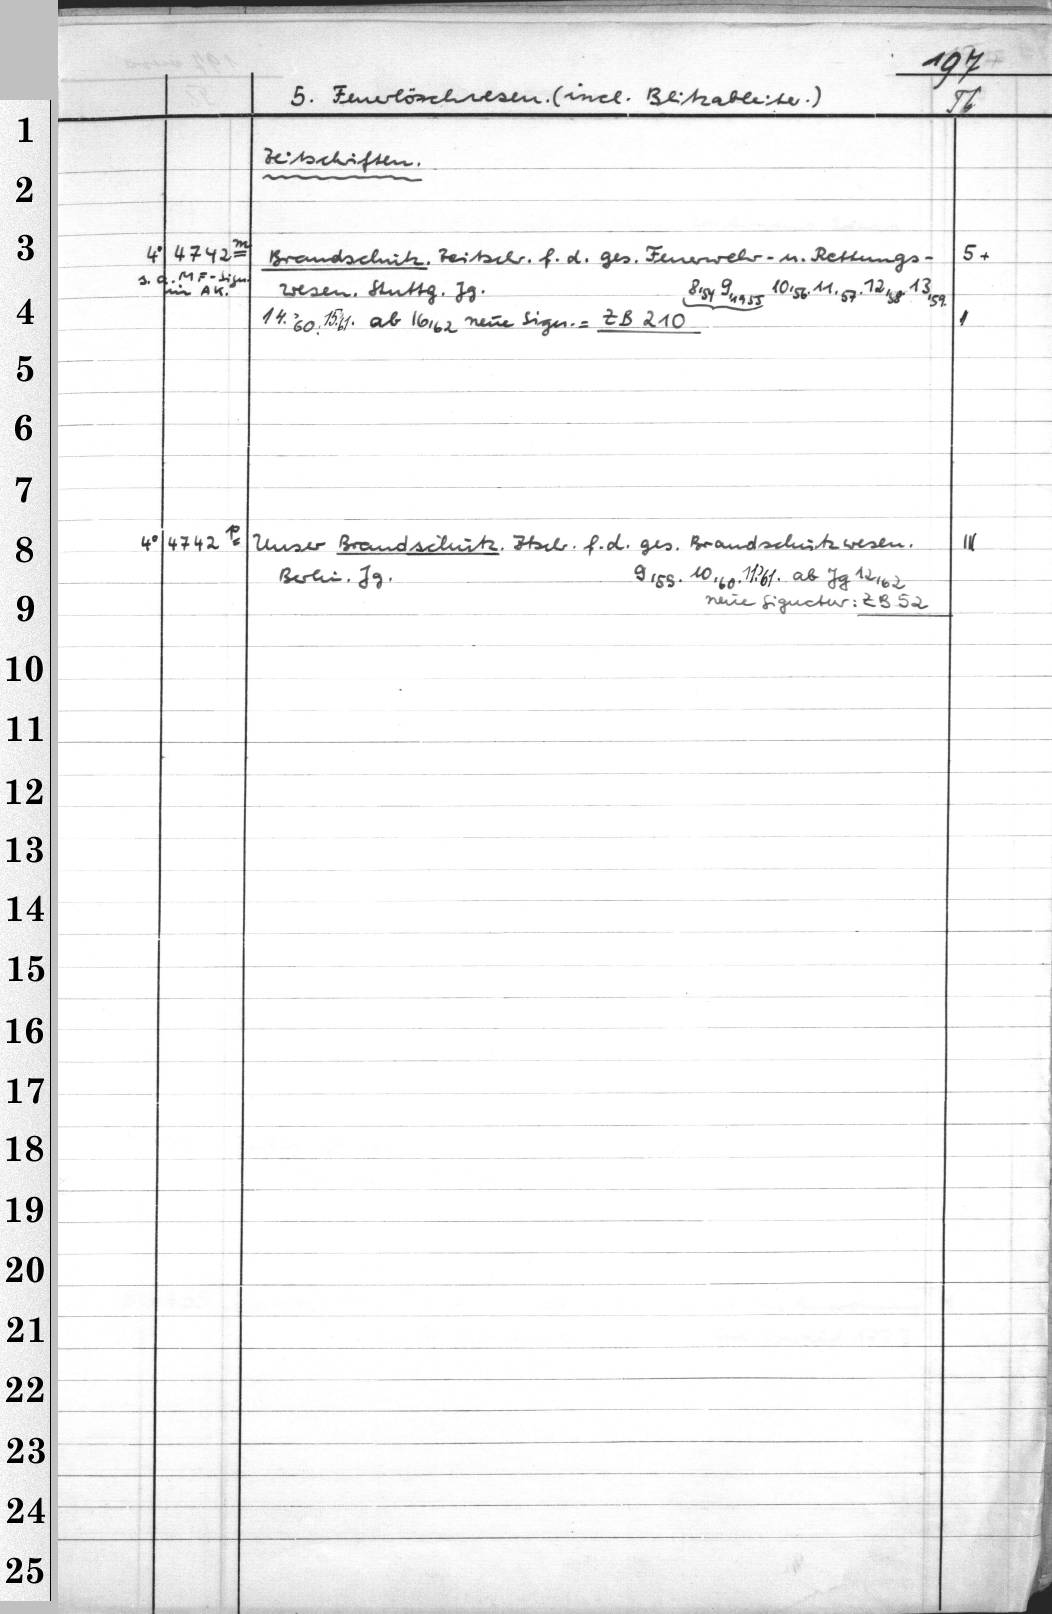 197
5. Feuerlöschwesen. (incl. Blitzableiter.)
Tb
1
Zeitschriften.
2
3
4° 4742 m Brandschutz. Zeitschr. f. d. ges. Feuerwehr- u. Rettungs- 5+
s. a. MF-Sign. wesen. Stuttg. Jg. 8,54 9,1955 10,56. 11,57. 12,58. 13,59.
im AK.
4
14.,60. 15,61. ab 16,62 neue Sign. = ZB 210 I
5
6
7
8
4° 4742 p Unser Brandschutz. Ztschr. f. d. ges. Brandschutzwesen. III
Berlin. Jg. 9,59. 10,60. 11,61. ab Jg 12,62
9
neue Signatur: ZB 52
10
11
12
13
14
15
16
17
18
19
20
21
22
23
24
25